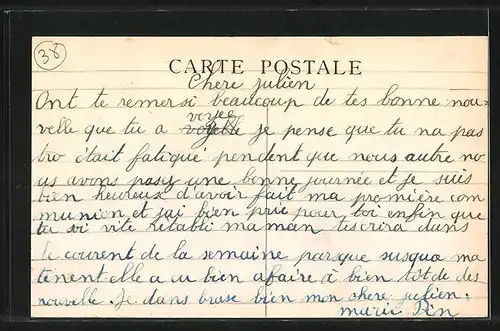 38
CARTE POSTALE
Chere julien
Ont te remersi beaucoup de tes bonne nou-
velle que tu a voyee je pense que tu na pas
tro était fatigue pendent que nous autre no
us avons pasez une bonne journée et je suis
bien heureuse d'avoir fait ma première com
munion et jai bien prié pour toi enfin que
tu soi vite rétabli maman tescrira dans
le courent de la semaine parsque jusqua ma
tenent elle a eu bien afaire à bien tôt de des
nouvelle. Je dans brase bien mon chere julien.
marie